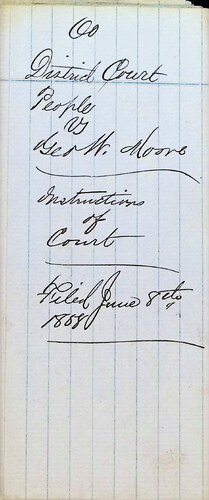 Co
District Court
People
vs
Geo W. Moore
Instructions
of
Court
Filed June 8th
1858